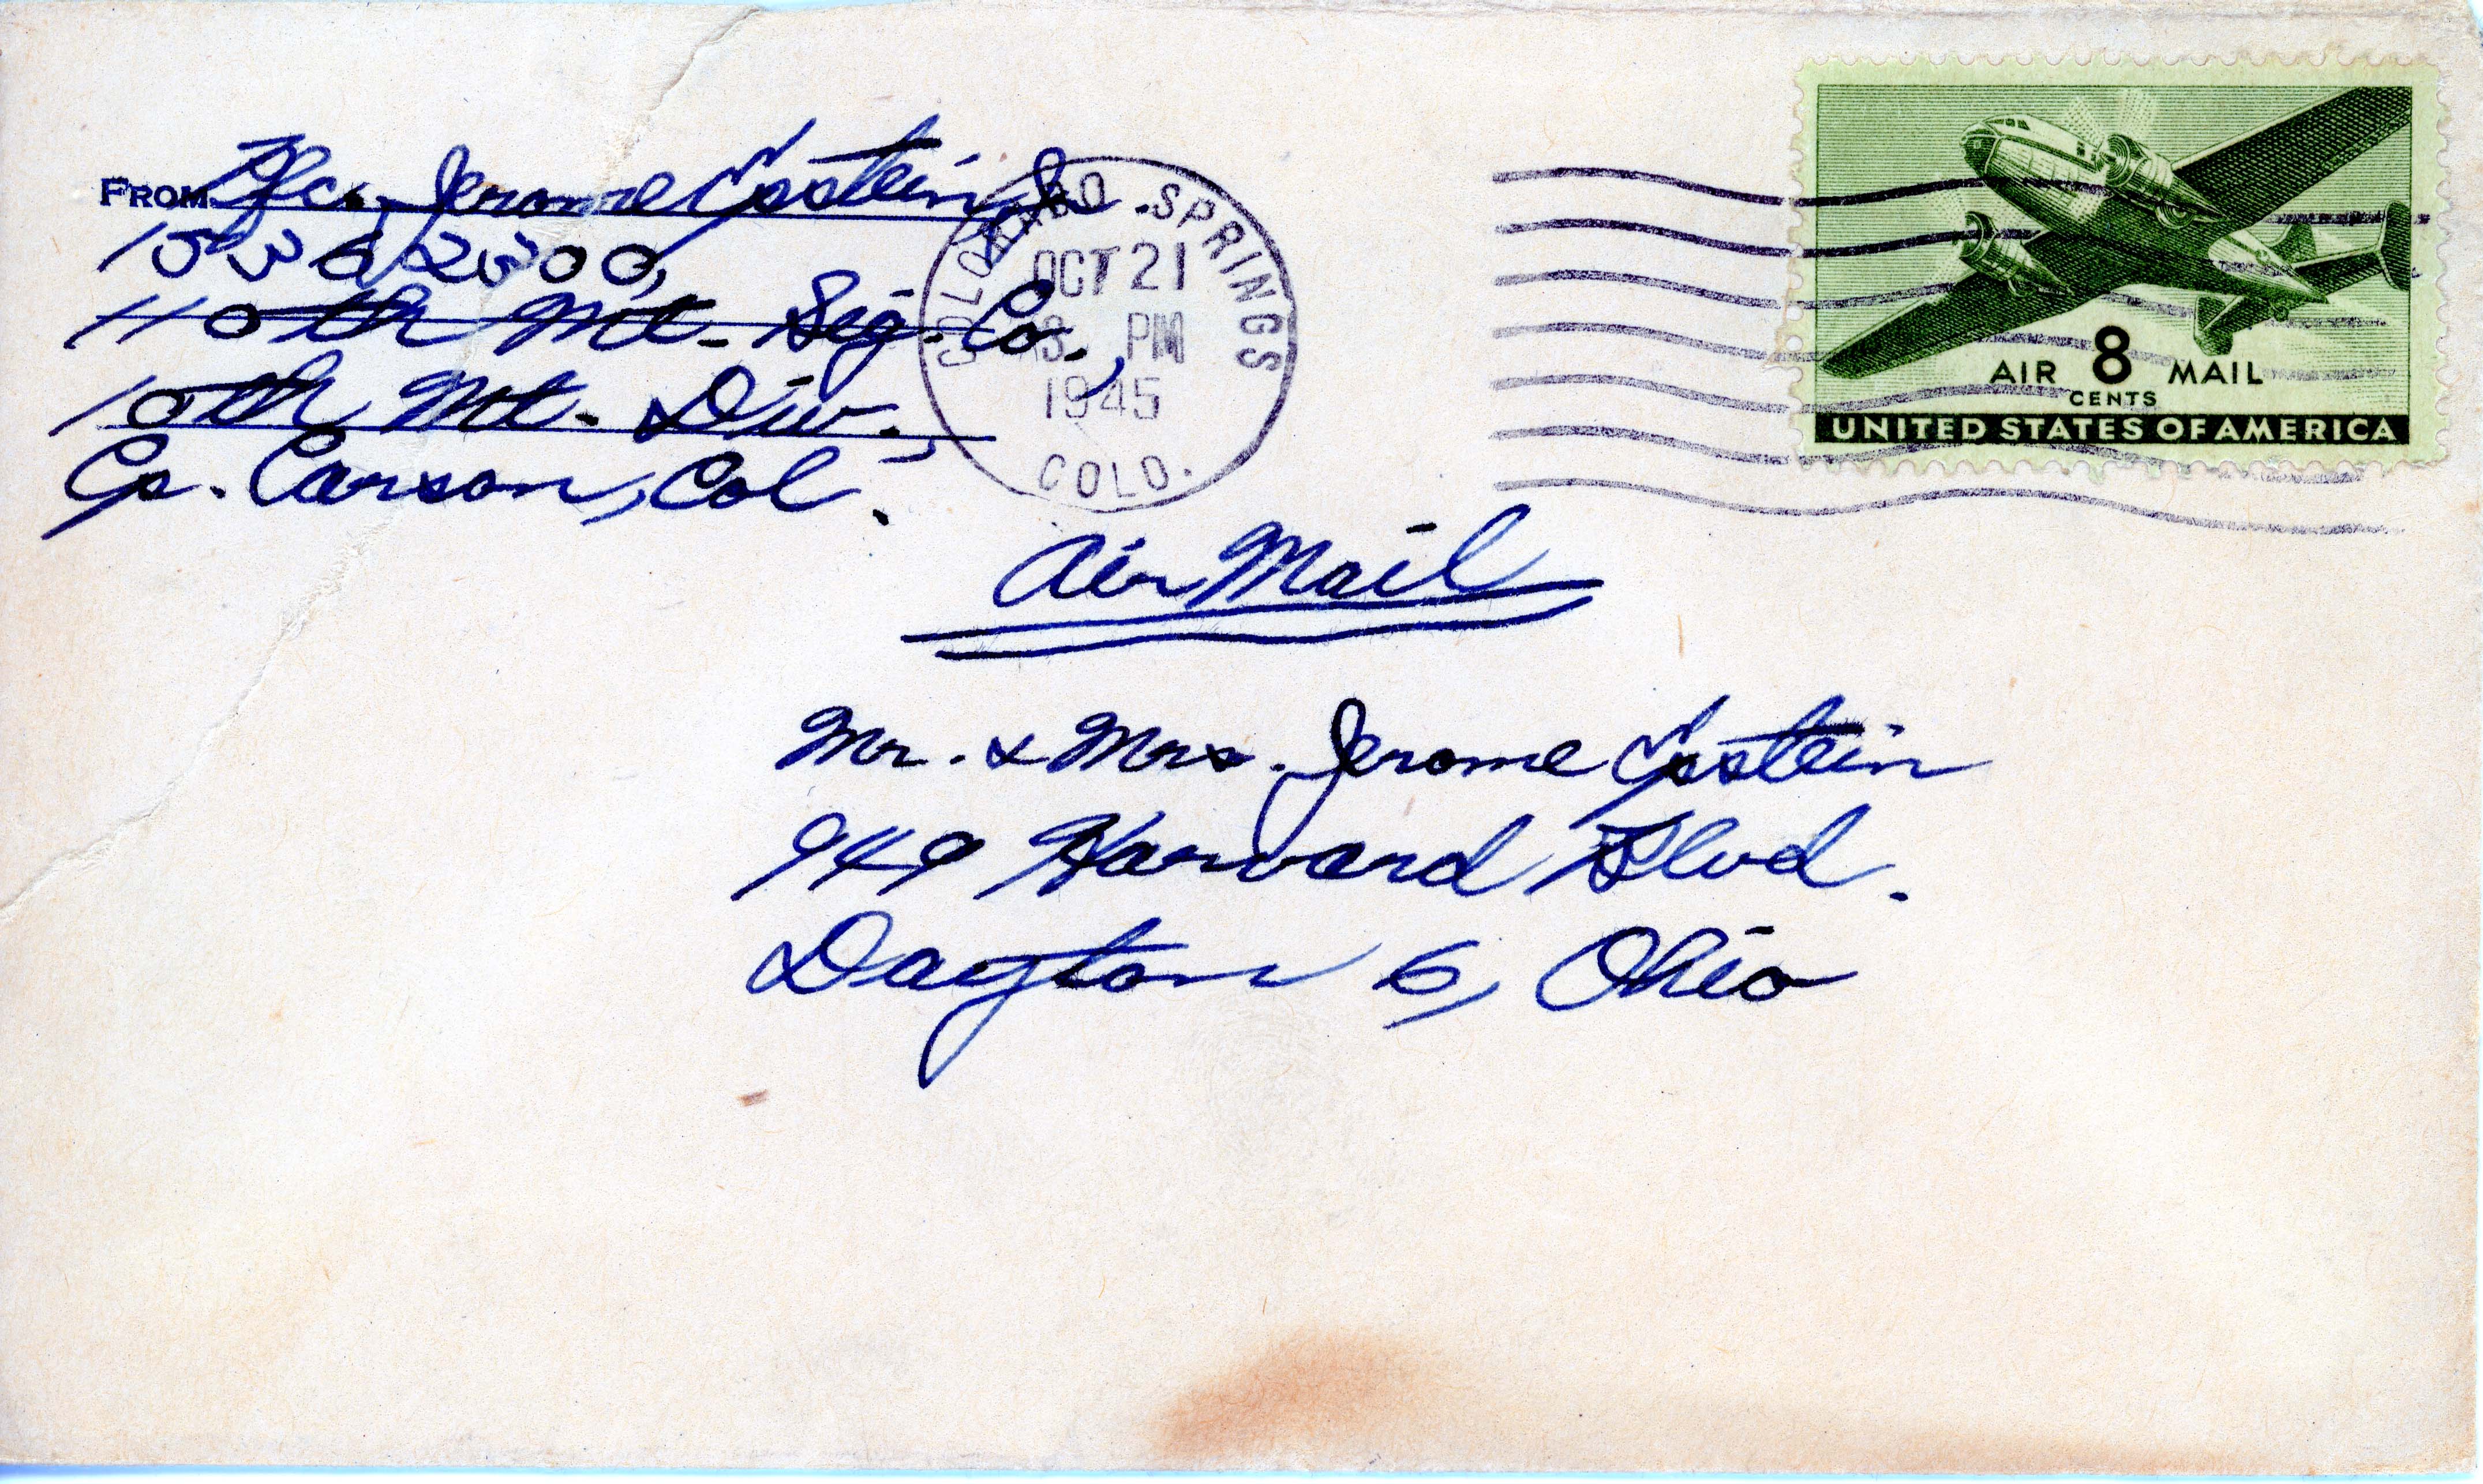 FROM Pfc. Jerome Epstein Jr.
15362300,
110th Mt. Sig. Co.,
10th Mt. Div.,
Cp. Carson, Col.
COLORADO SPRINGS
OCT 21
PM
1945
COLO.
AIR 8 MAIL
CENTS
UNITED STATES OF AMERICA
Air Mail
Mr. & Mrs. Jerome Epstein
949 Harvard Blvd.
Dayton 6, Ohio